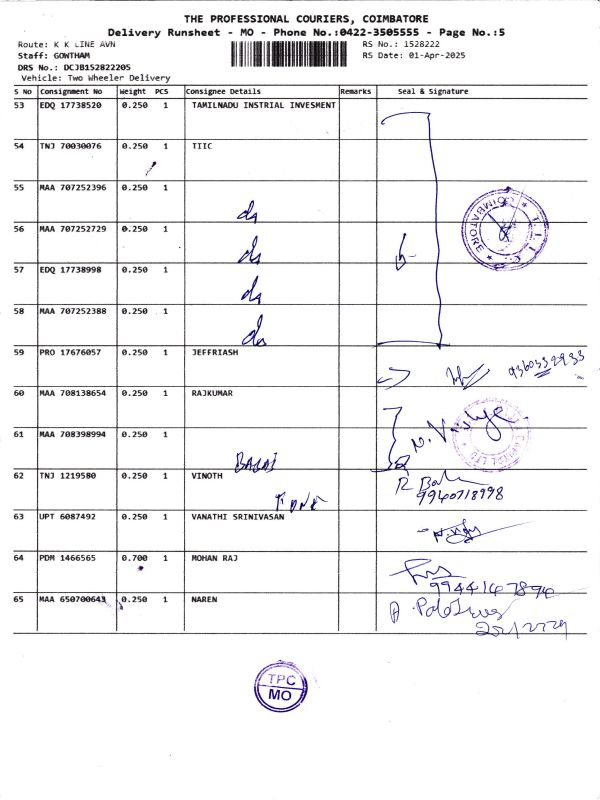 THE PROFESSIONAL COURIERS, COIMBATORE
Delivery Runsheet - MO - Phone No.:0422-3505555 - Page No.:5
Route: K K LINE AVN
RS No.: 1528222
Staff: GOWTHAM
RS Date: 01-Apr-2025
DRS No.: DCJB152822205
Vehicle: Two Wheeler Delivery
S No Consignment No Weight PCS Consignee Details Remarks Seal & Signature
53 EDQ 17738520 0.250 1 TAMILNADU INSTRIAL INVESMENT
54 TNJ 70030076 0.250 1 TIIC
55 MAA 707252396 0.250 1
do
56 MAA 707252729 0.250 1
do
57 EDQ 17738998 0.250 1
do
58 MAA 707252388 0.250 1
do
T.I.I.C.
COIMBATORE
59 PRO 17676057 0.250 1 JEFFRIASH
9360332933
60 MAA 708138654 0.250 1 RAJKUMAR
61 MAA 708398994 0.250 1
BALAJ
62 TNJ 1219580 0.250 1 VINOTH
9940718998
63 UPT 6087492 0.250 1 VANATHI SRINIVASAN
64 PDM 1466565 0.700 1 MOHAN RAJ
9944167894
65 MAA 650700643 0.250 1 NAREN
TPC
MO